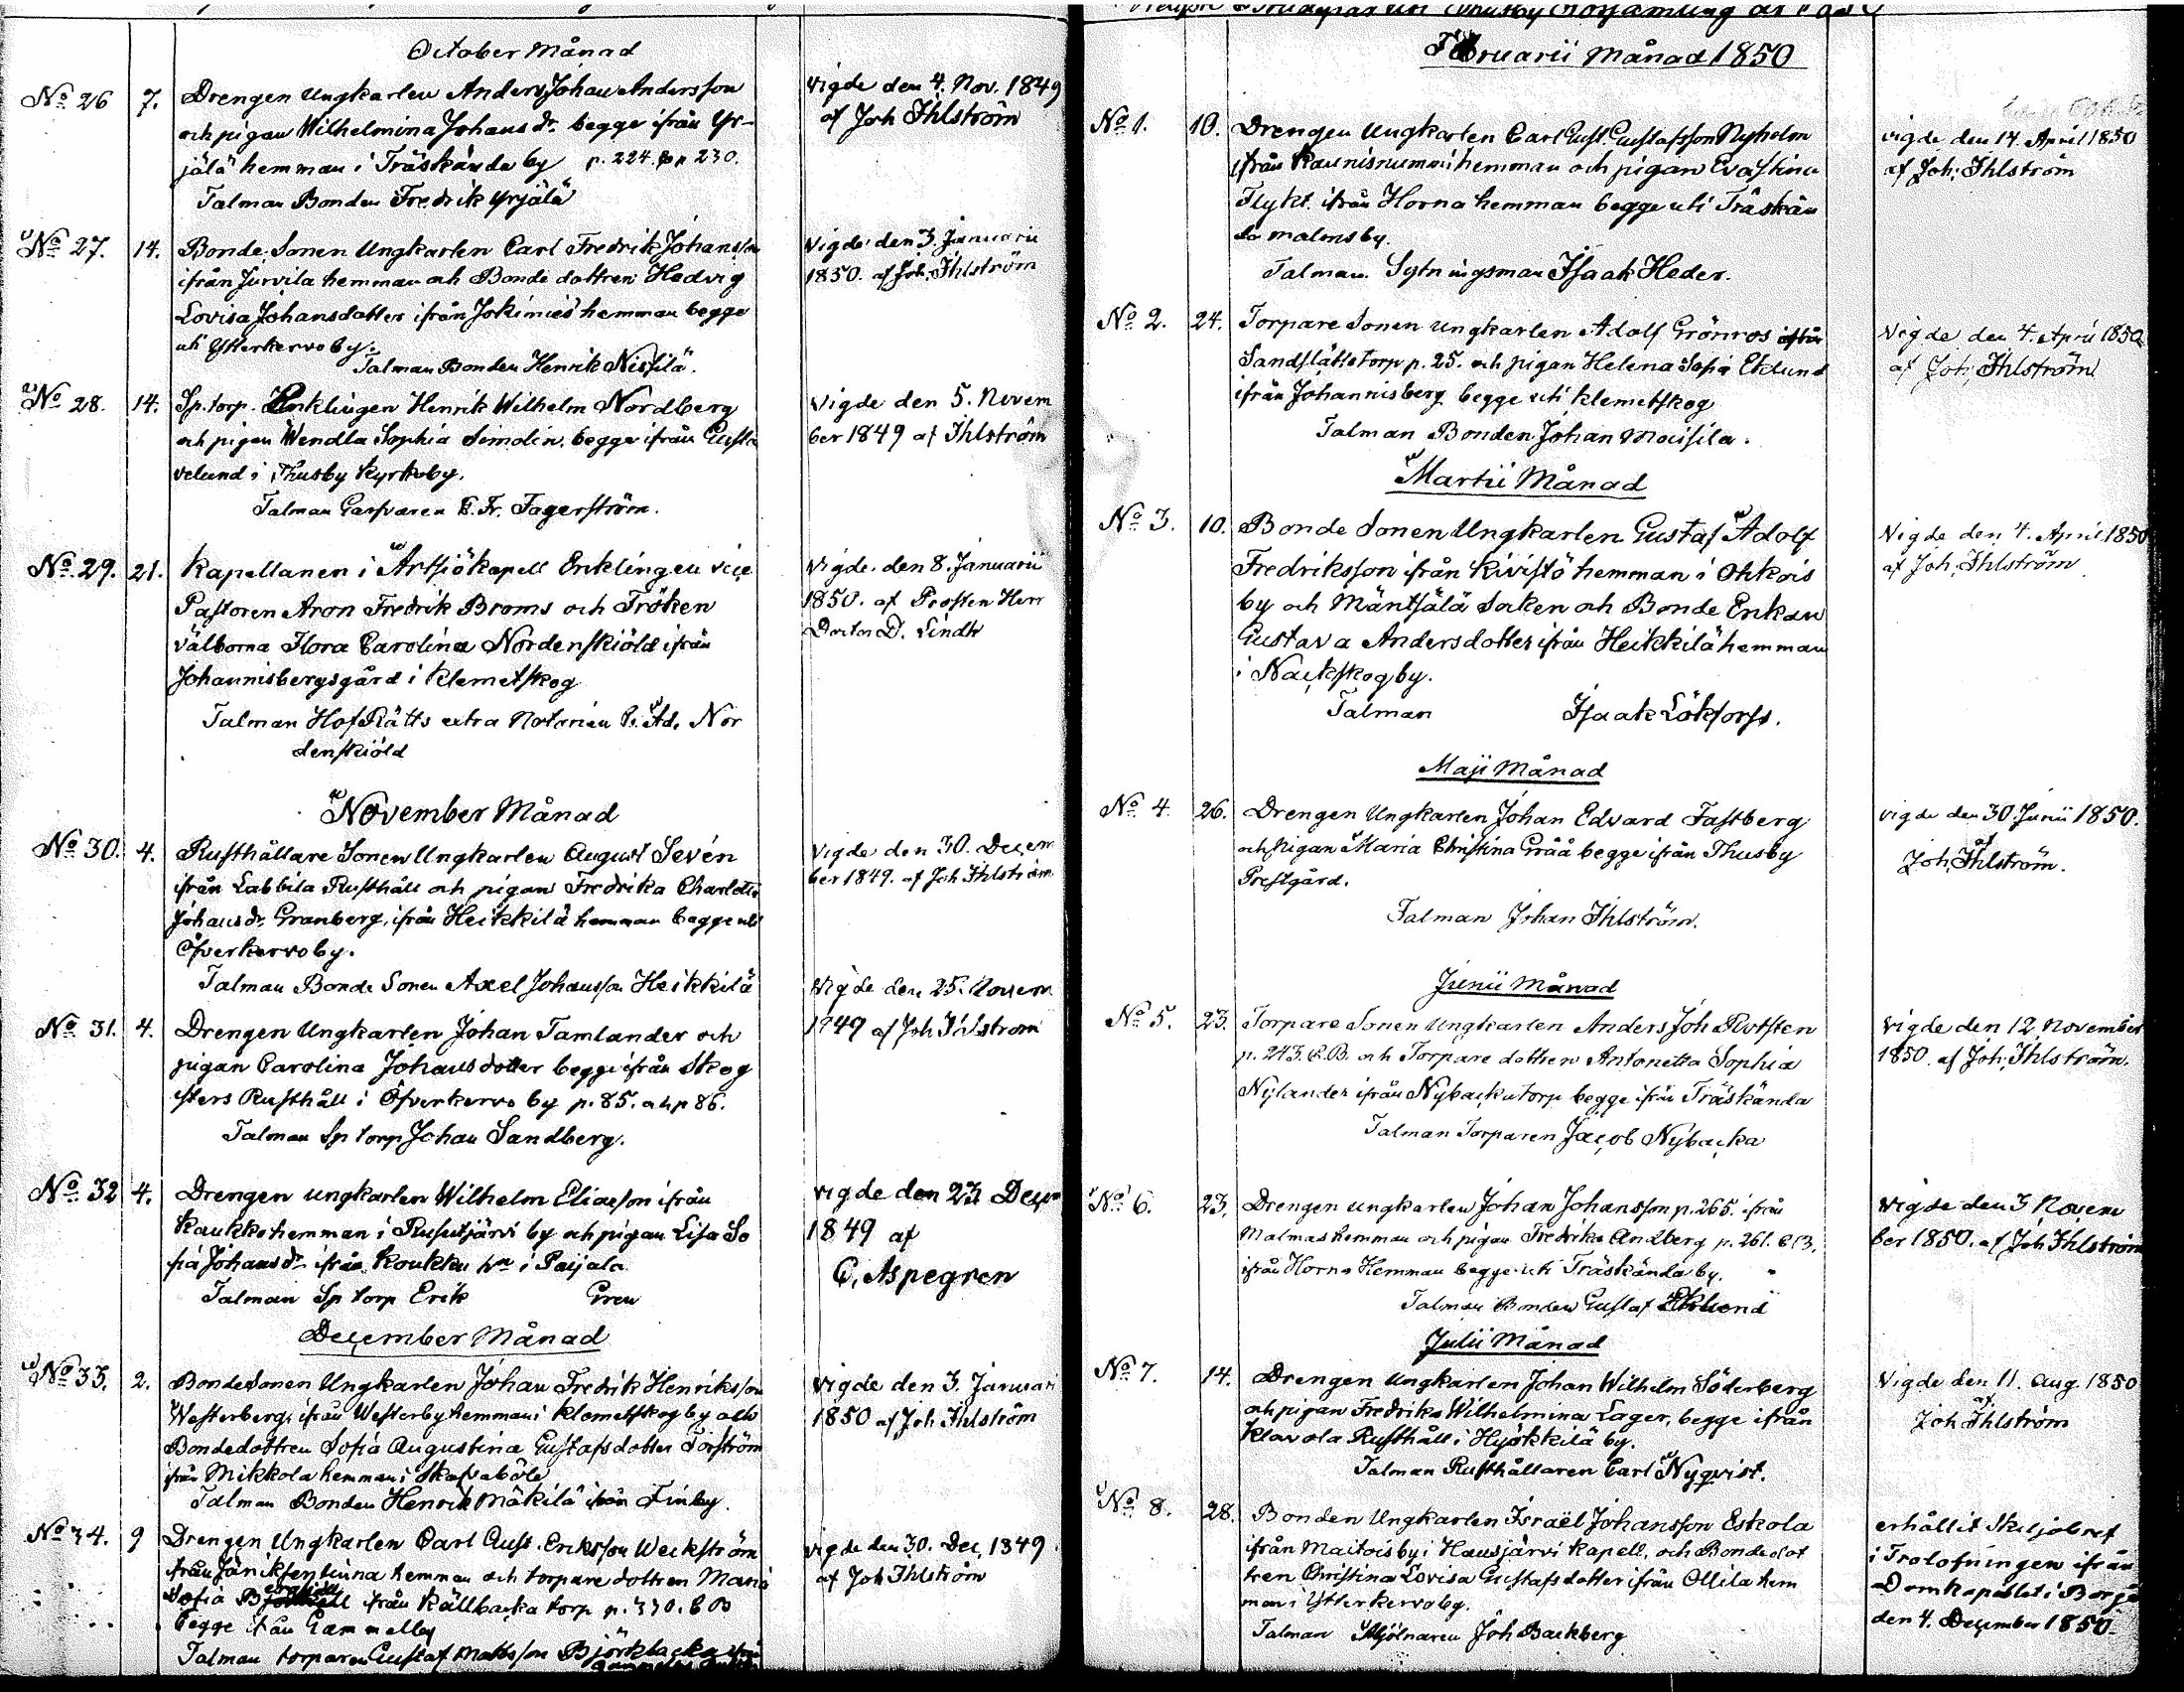 October Månad
No 26 7. Drengen Ungkarlen Anders Johan Andersson
och pigan Wilhelmina Johans dr. begge ifrån Yr-
jälä hemman i Träskända by p. 224. & p 230.
Talman Bonden Fredrik Yrjälä
vigde den 4. Nov. 1849
af Joh Ihlström
No 27. 14. Bonde Sonen Ungkarlen Carl Fredrik Johansson
ifrån Jurvila hemman och Bonde dottren Hedvig
Lovisa Johansdotter ifrån Jokimies hemman begge
uti Ytterkervo by.
Talman Bonden Henrik Nissilä.
Vigde den 3. Januarii
1850. af Joh. Ihlström
No 28. 14. Sp. torp. Enklingen Henrik Wilhelm Nordberg
och pigan Wendla Sophia Simolin, begge ifrån Gusta
velund i Thusby Kyrkoby.
Talman Garfvaren C. Fr. Fagerström.
Vigde den 5. Novem
ber 1849 af Ihlström
No 29. 21. Kapellanen i Artsjö kapell Enklingen vice
Pastoren Aron Fredrik Broms och Fröken
välborna Flora Carolina Nordenskiöld ifrån
Johannisbergsgård i Klemetskog
Talman HofRätts extra Notarien C. Ad. Nor
denskiöld
Vigde. den 8. Januarii
1850. af Prosten Herr
Doctor D. Lindh
November Månad
No 30. 4. Rusthållare Sonen Ungkarlen August Sevén
ifrån Labbila Rusthåll och pigan Fredrika Charlotta
Johans dr. Granberg, ifrån Heikkilä hemman begge uti
Öfverkervo by.
Talman Bonde Sonen Axel Johansson Heikkilä
Vigde den 30. Decem
ber 1849. af Joh Ihlström
No 31. 4. Drengen Ungkarlen Johan Tamlander och
pigan Carolina Johansdotter begge ifrån Skog
sters Rusthåll i Öfverkervo by p. 85. och p 86.
Talman Sp torp Johan Sandberg.
Vigde den 25. Novem
1849 af Joh Ihlström
No 32 4. Drengen ungkarlen Wilhelm Eliasson ifrån
Kaukko hemman i Rusutjärvi by och pigan Lisa So
fia Johans dr ifrån Koukku hn i Paijala
Talman Sp torp Erik Gren
vigde den 23 Decem
1849 af
C. Aspegren
December Månad
No 33. 2. Bonde Sonen Ungkarlen Johan Fredrik Henriksson
Westerberg, ifrån Westerby hemman i Klemetskog by och
Bondedottren Sofia Augustina Gustafsdotter Forström
ifrån Mikkola hemman i Skafvaböle
Talman Bonden Henrik Mäkilä ifrån Finby.
Vigde den 3. Januari
1850 af Joh Ihlström
No 34. 9 Drengen Ungkarlen Carl Gust. Eriksson Weckström
från Jäniksenlinna hemman och torpare dottren Maria
Sofia ifrån Källbacka torp p. 330. C B
begge ifrån Gammelby
Talman torparen Gustaf Mattsson Björkbacka
vigde den 30. Dec. 1849
af Joh Ihlström
Februarii Månad 1850
No 1. 10. Drengen Ungkarlen Carl Gust. Gustafsson Nyholm
ifrån Kaunisnummi hemman och pigan Eva Stina
Flykt. ifrån Horna hemman begge uti Träskän
da malms by.
Talman. Sytningsman Isaak Heder.
vigde den 14. April 1850
af Joh. Ihlström
No 2. 24. Torpare Sonen Ungkarlen Adolf Grönroos ifrån
Sandslätts torp p. 25. och pigan Helena Sofia Eklund
ifrån Johannisberg begge uti Klemetskog
Talman Bonden Johan Maisila.
Vigde den 4. April 1850
af Joh. Ihlström
Martii Månad
No 3. 10. Bonde Sonen Ungkarlen Gustaf Adolf
Fredriksson ifrån Kivistö hemman i Ohkois
by och Mäntsälä Socken och Bonde Enkan
Gustava Andersdotter ifrån Heikkilä hemman
i Nackskog by.
Talman Isaak Lökfors.
Vigde den 4. April 1850
af Joh. Ihlström
Maji Månad
No 4. 26. Drengen Ungkarlen Johan Edvard Fastberg
och Pigan Maria Christina Gråå begge ifrån Thusby
Prestgård.
Talman Johan Ihlström.
vigde den 30 Junii 1850.
af
Joh. Ihlström.
Junii Månad
No 5. 23. Torpare Sonen Ungkarlen Anders Joh Rotsten
p. 243. C.B. och Torpare dottren Antonetta Sophia
Nylander ifrån Nybacka torp begge ifrån Träskända
Talman Torparen Jacob Nybacka
Vigde den 12 November
1850. af Joh. Ihlström.
No 6. 23. Drengen ungkarlen Johan Johansson p. 265. ifrån
Malmas hemman och pigan Fredrika Andberg p. 261. C B.
ifrån Horna Hemman begge uti Träskända by.
Talman Bonden Gustaf Eklund
Vigde den 3 Novem
ber 1850. af Joh Ihlström
Julii Månad
No 7. 14. Drengen Ungkarlen Johan Wilhelm Söderberg
och pigan Fredrika Wilhelmina Lager, begge ifrån
Klavola Rusthåll i Hyökkilä by.
Talman Rusthållaren Carl Nyqvist.
Vigde den 11. Aug. 1850
af
Joh Ihlström
No 8. 28. Bonden Ungkarlen Israël Johansson Eskola
ifrån Maitois by i Hausjärvi Kapell. och Bonde dot
tren Christina Lovisa Gustafsdotter ifrån Ollila hem
man i Ytterkervo by.
Talman Mjölnaren Joh Backberg
erhållit Skiljobref
i Trolofningen ifrån
Domkapitlet i Borgå
den 4. December 1850